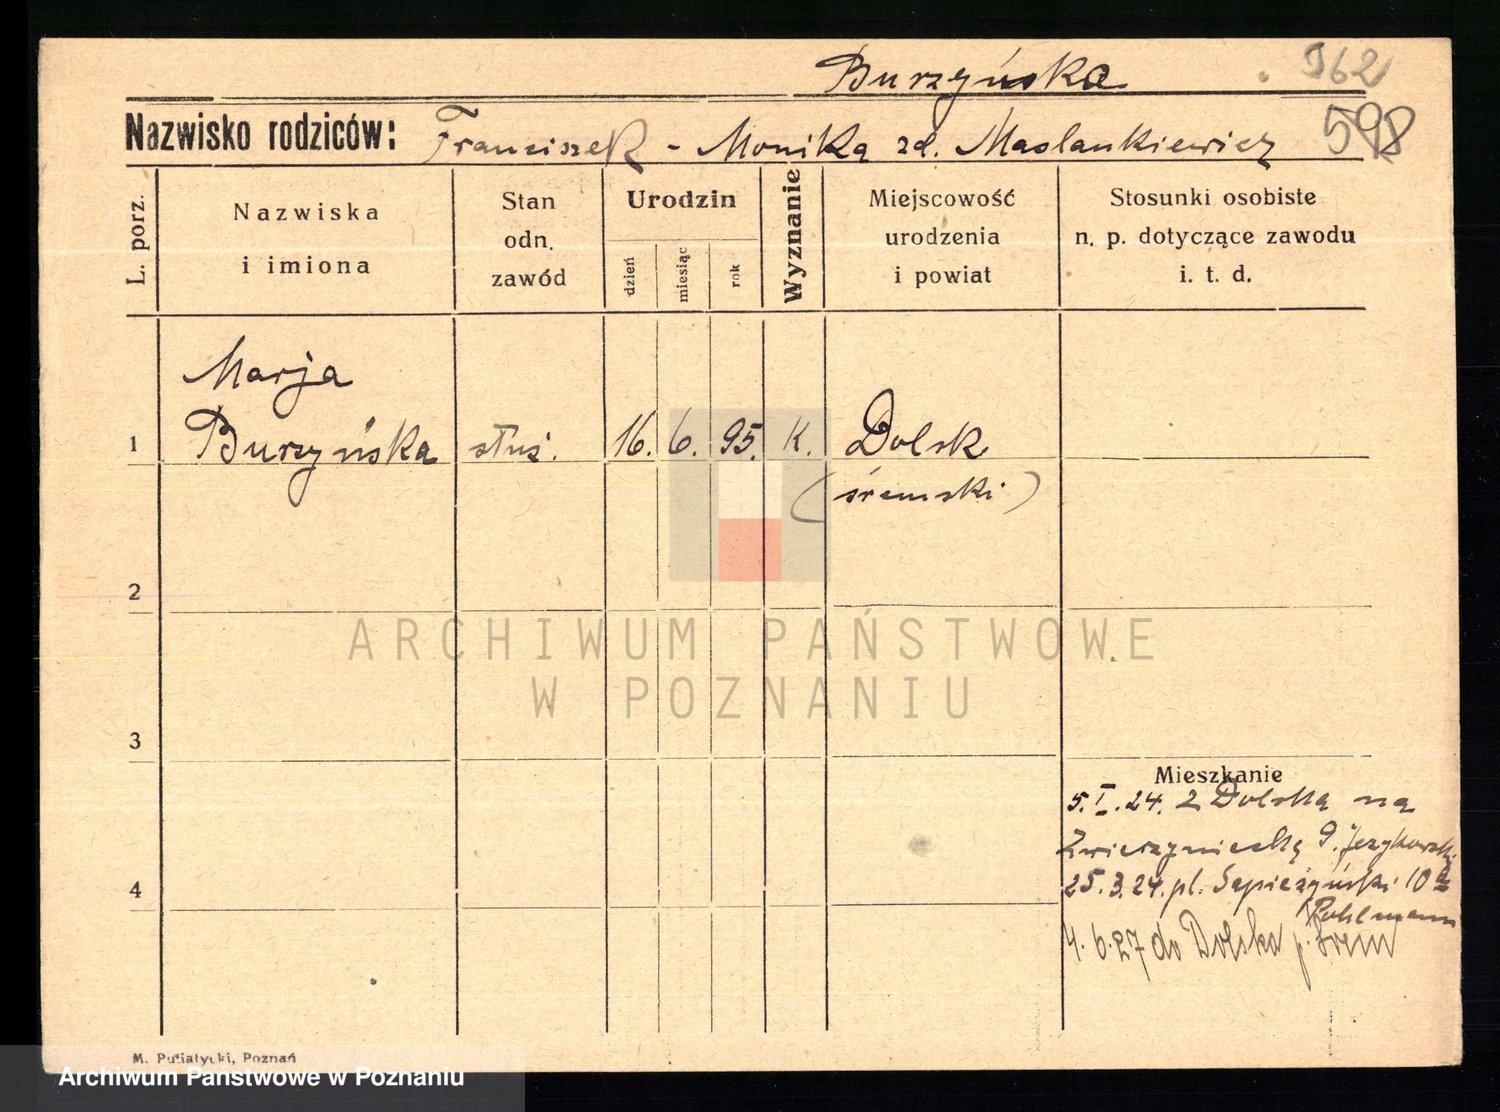 Burzyńska
962
598
Nazwisko rodziców: Franciszek - Monika zd. Maslankiewicz
L. porz.
Nazwiska
i imiona
Stan
odn.
zawód
Urodzin
dzień
miesiąc
rok
Wyznanie
Miejscowość
urodzenia
i powiat
Stosunki osobiste
n. p. dotyczące zawodu
i. t. d.
Marja
1 Burzyńska służ. 16. 6. 95. K. Dolsk
(śremski)
2
ARCHIWUM PAŃSTWOWE
W POZNANIU
3
Mieszkanie
5.I.24. z Dolska na
Zwierzyniecką 9. Jezykowski
4
25.3.24. pl. Sapieżyński 10a
Pohlmann
4.6.27 do Dolska p. Śrem
M. Putiatycki, Poznań
Archiwum Państwowe w Poznaniu